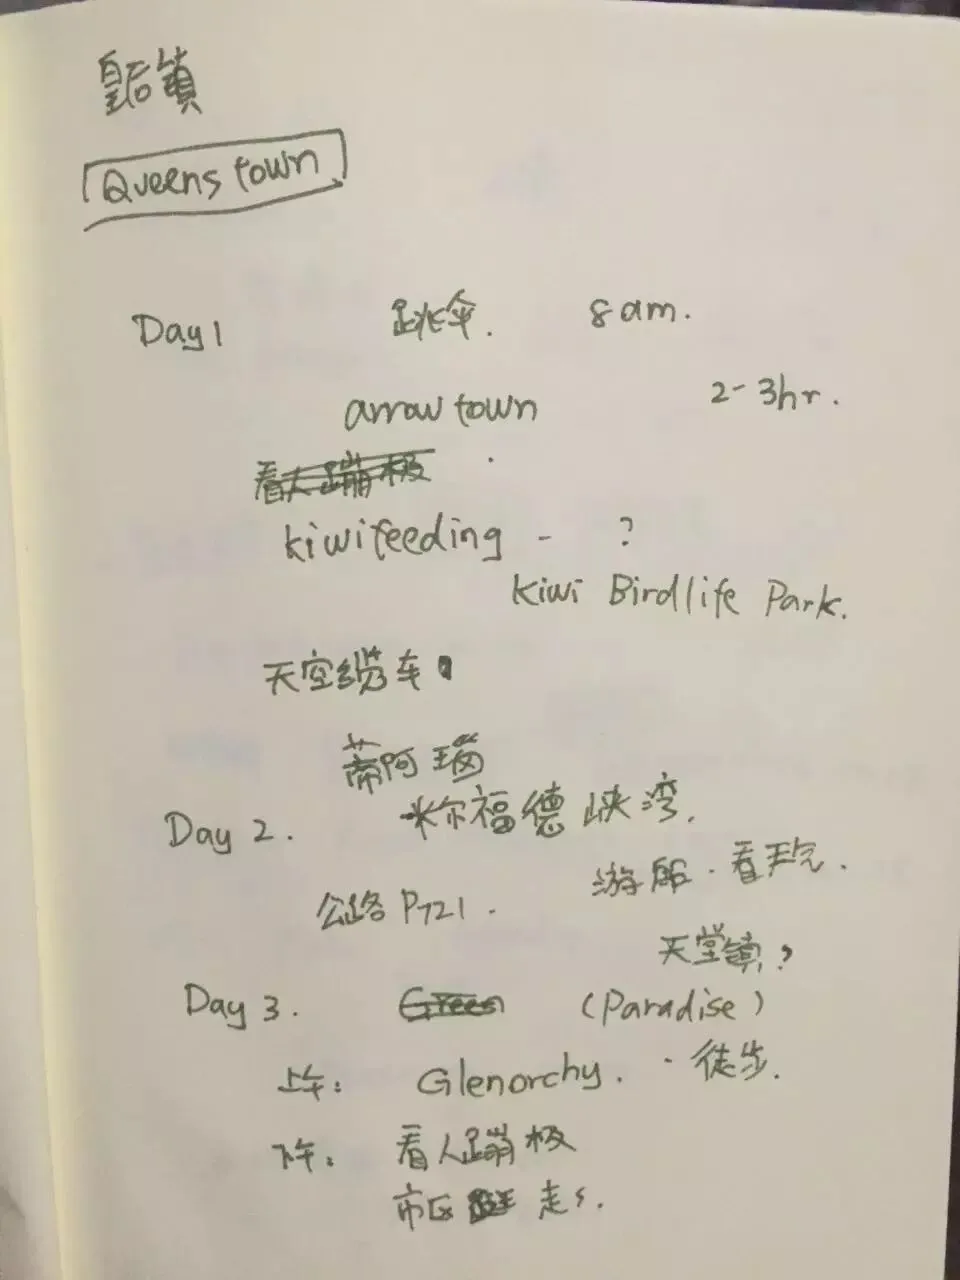 皇后镇
Queenstown
Day 1 跳伞. 8 am.
arrow town 2-3hr.
看人蹦极
kiwi feeding - ?
Kiwi Birdlife Park.
天空缆车
蒂阿瑙
Day 2. 米尔福德峡湾.
公路 P721. 游船. 看天气.
天堂镇?
Day 3. Green (Paradise)
上午: Glenorchy. · 徒步.
下午: 看人蹦极
市区 走走.